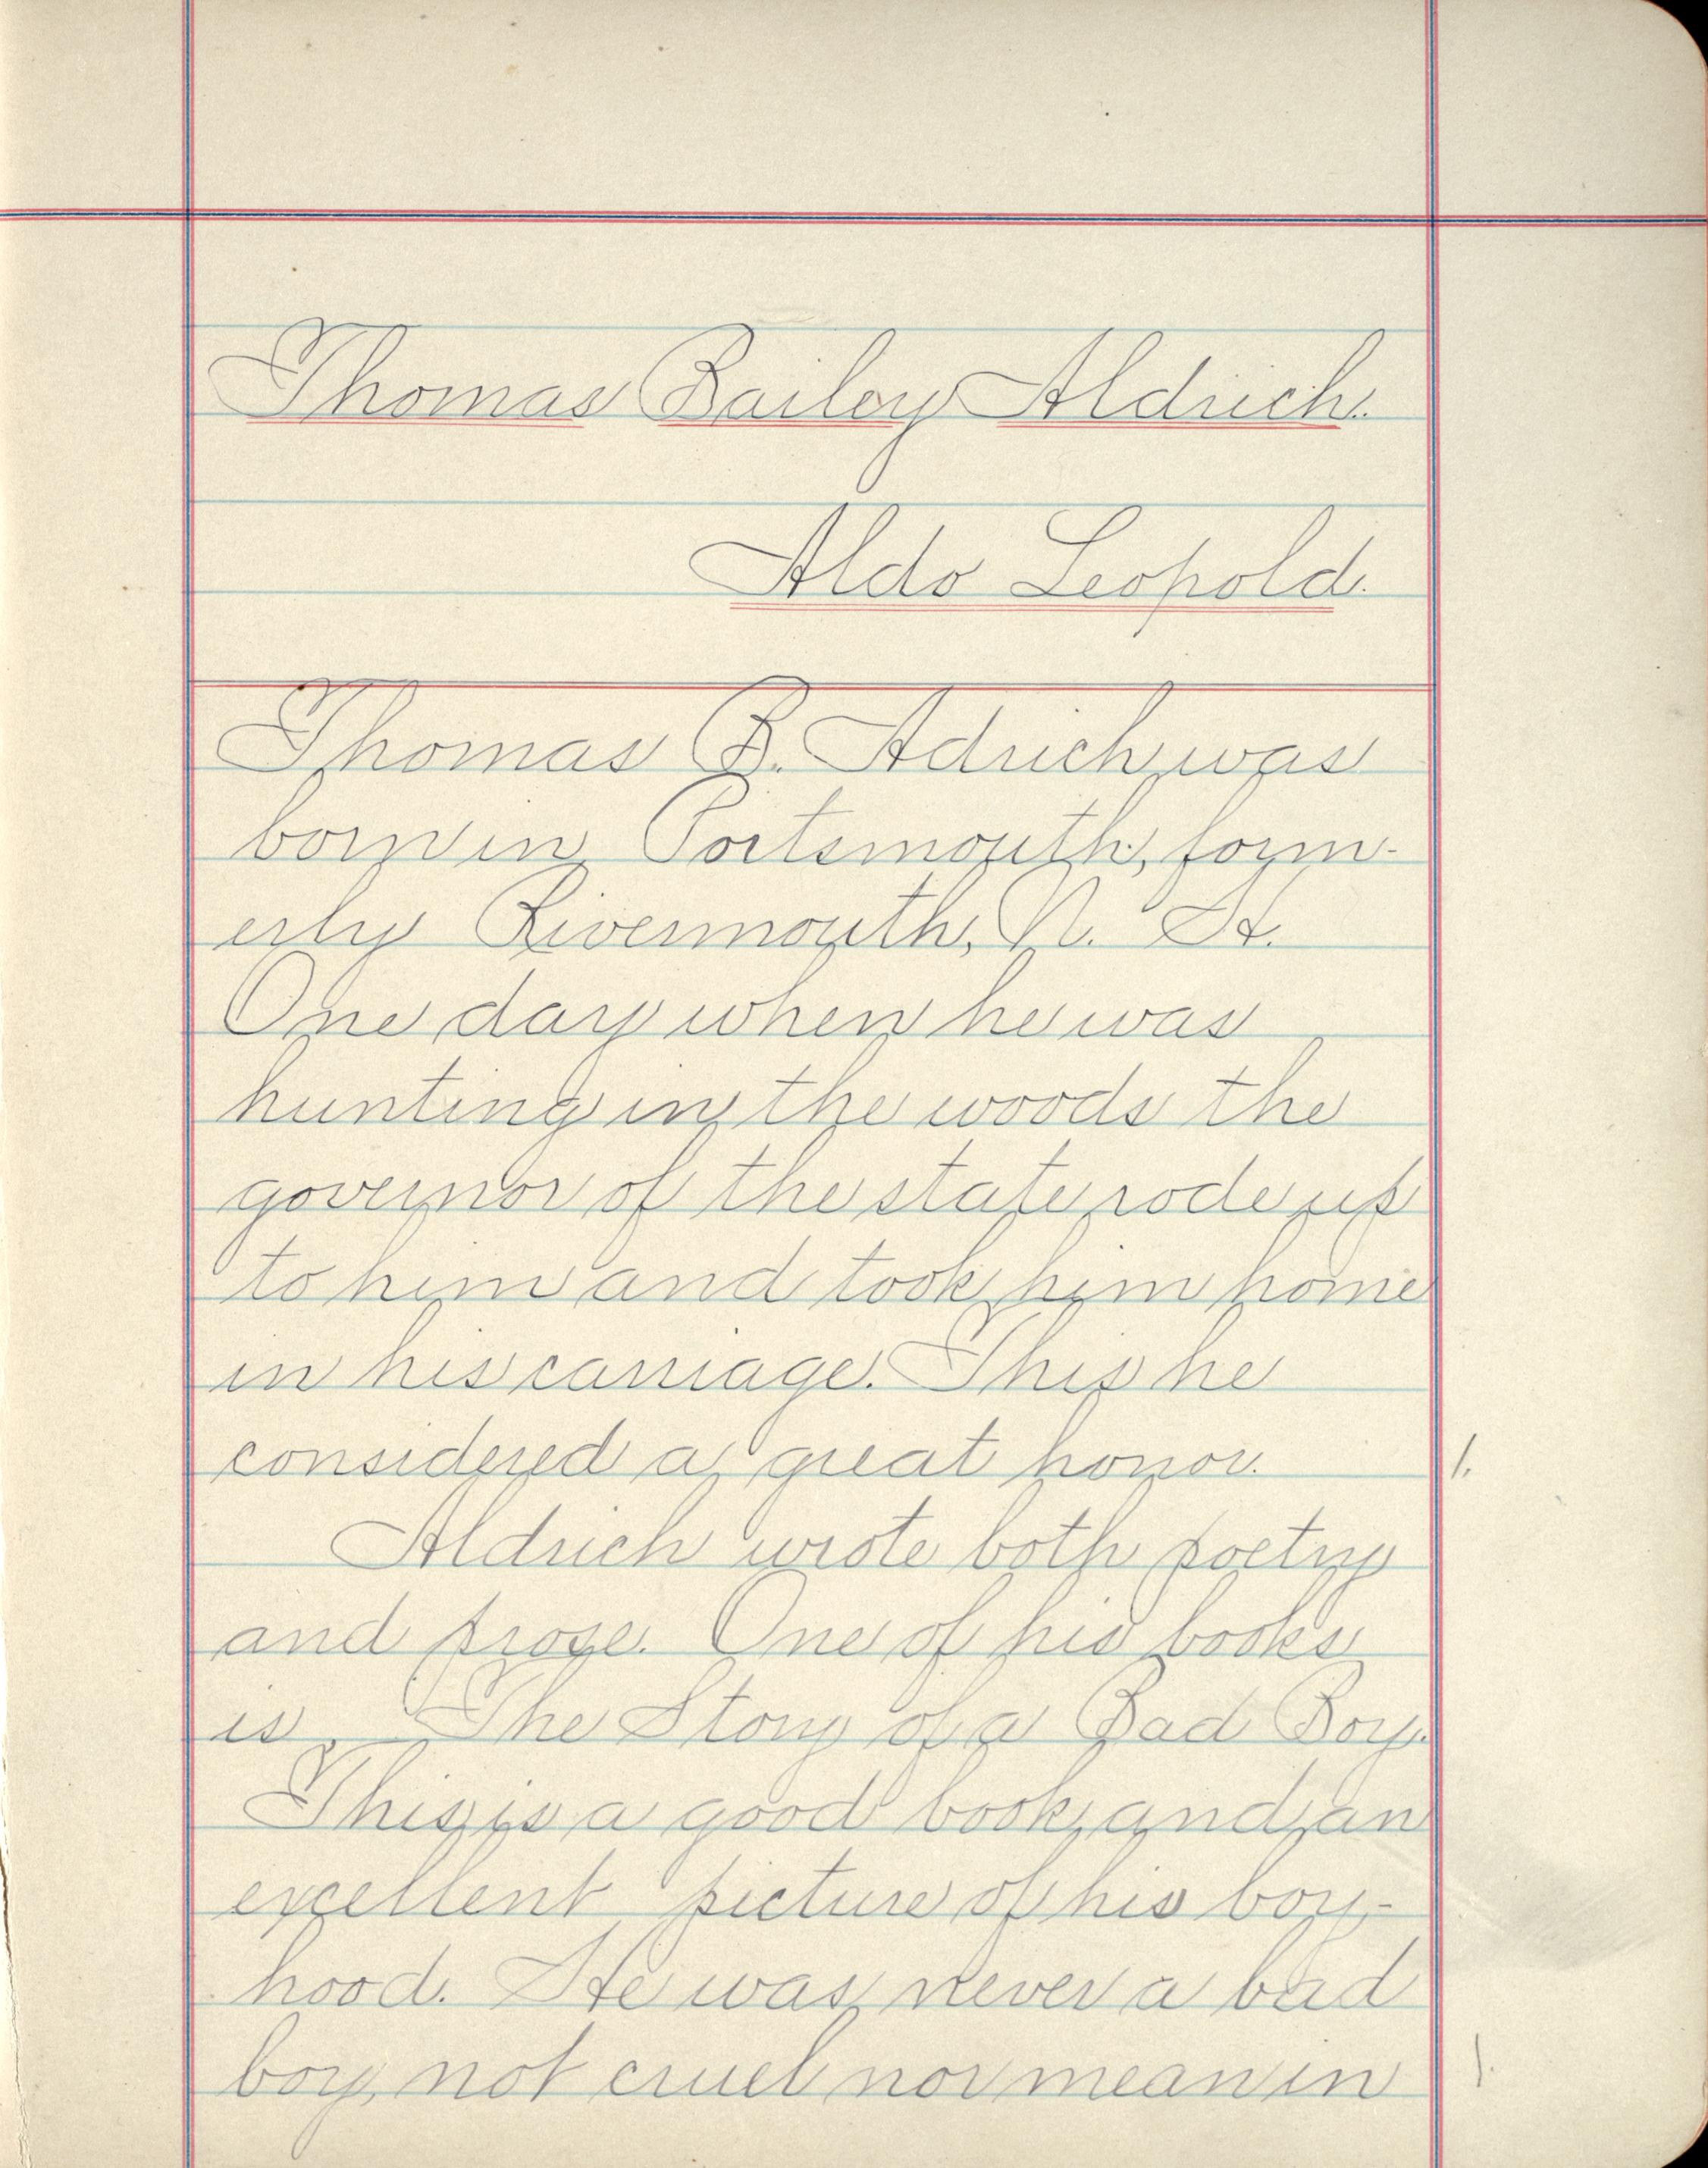 Thomas Bailey Aldrich.
Aldo Leopold.
Thomas B. Adrich was
born in Portsmouth, form-
erly Rivermouth, N. H.
One day when he was
hunting in the woods the
governor of the state rode up
to him and took him home
in his carriage. This he
considered a great honor.
1.
Aldrich wrote both poetry
and prose. One of his books
is, The Story of a Bad Boy.
This is a good book, and an
excellent picture of his boy-
hood. He was never a bad
boy, not cruel nor mean in
1.